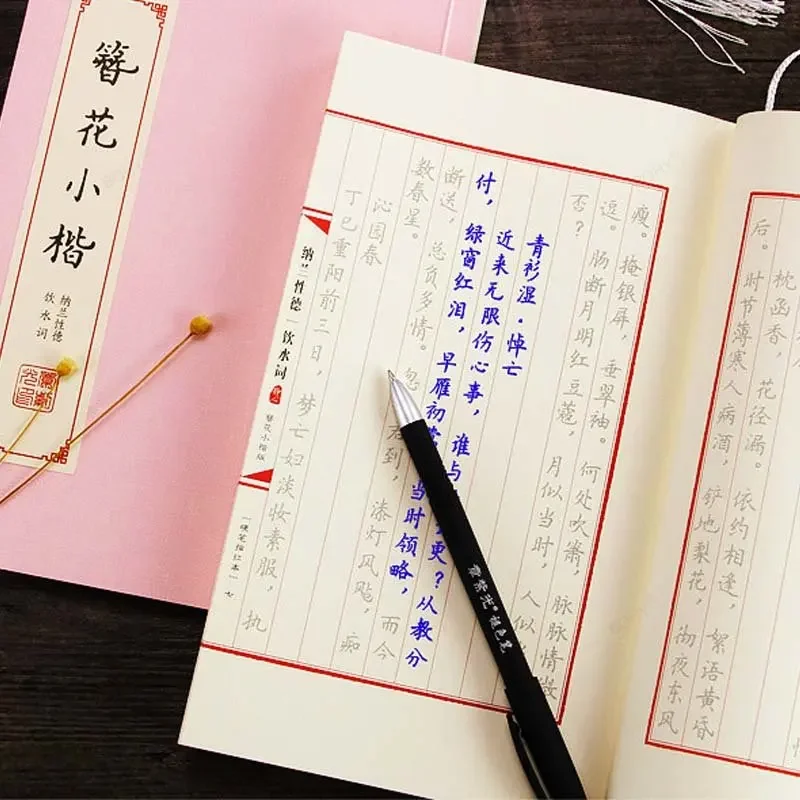 簪花小楷
纳兰性德
饮水词
枕函香，花径漏。依约相逢，絮语黄昏
后。时节薄寒人病酒，铲地梨花，彻夜东风
瘦。掩银屏，垂翠袖。何处吹箫，脉脉情微
逗。肠断月明红豆蔻，月似当时，人似
否？
青衫湿·悼亡
近来无限伤心事，谁与更？从教分
付，绿窗红泪，早雁初当时领略，而今
断送，总负多情。忽君到，漆灯风飐，痴
数春星。
沁园春
丁巳重阳前三日，梦亡妇淡妆素服，执
纳兰性德｜饮水词
簪花小楷版
「硬笔描红本」七